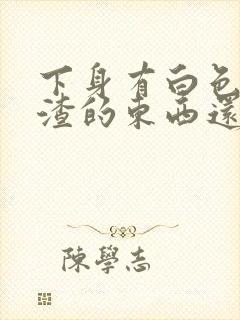 下身有白色
渣的东西還
陳學志